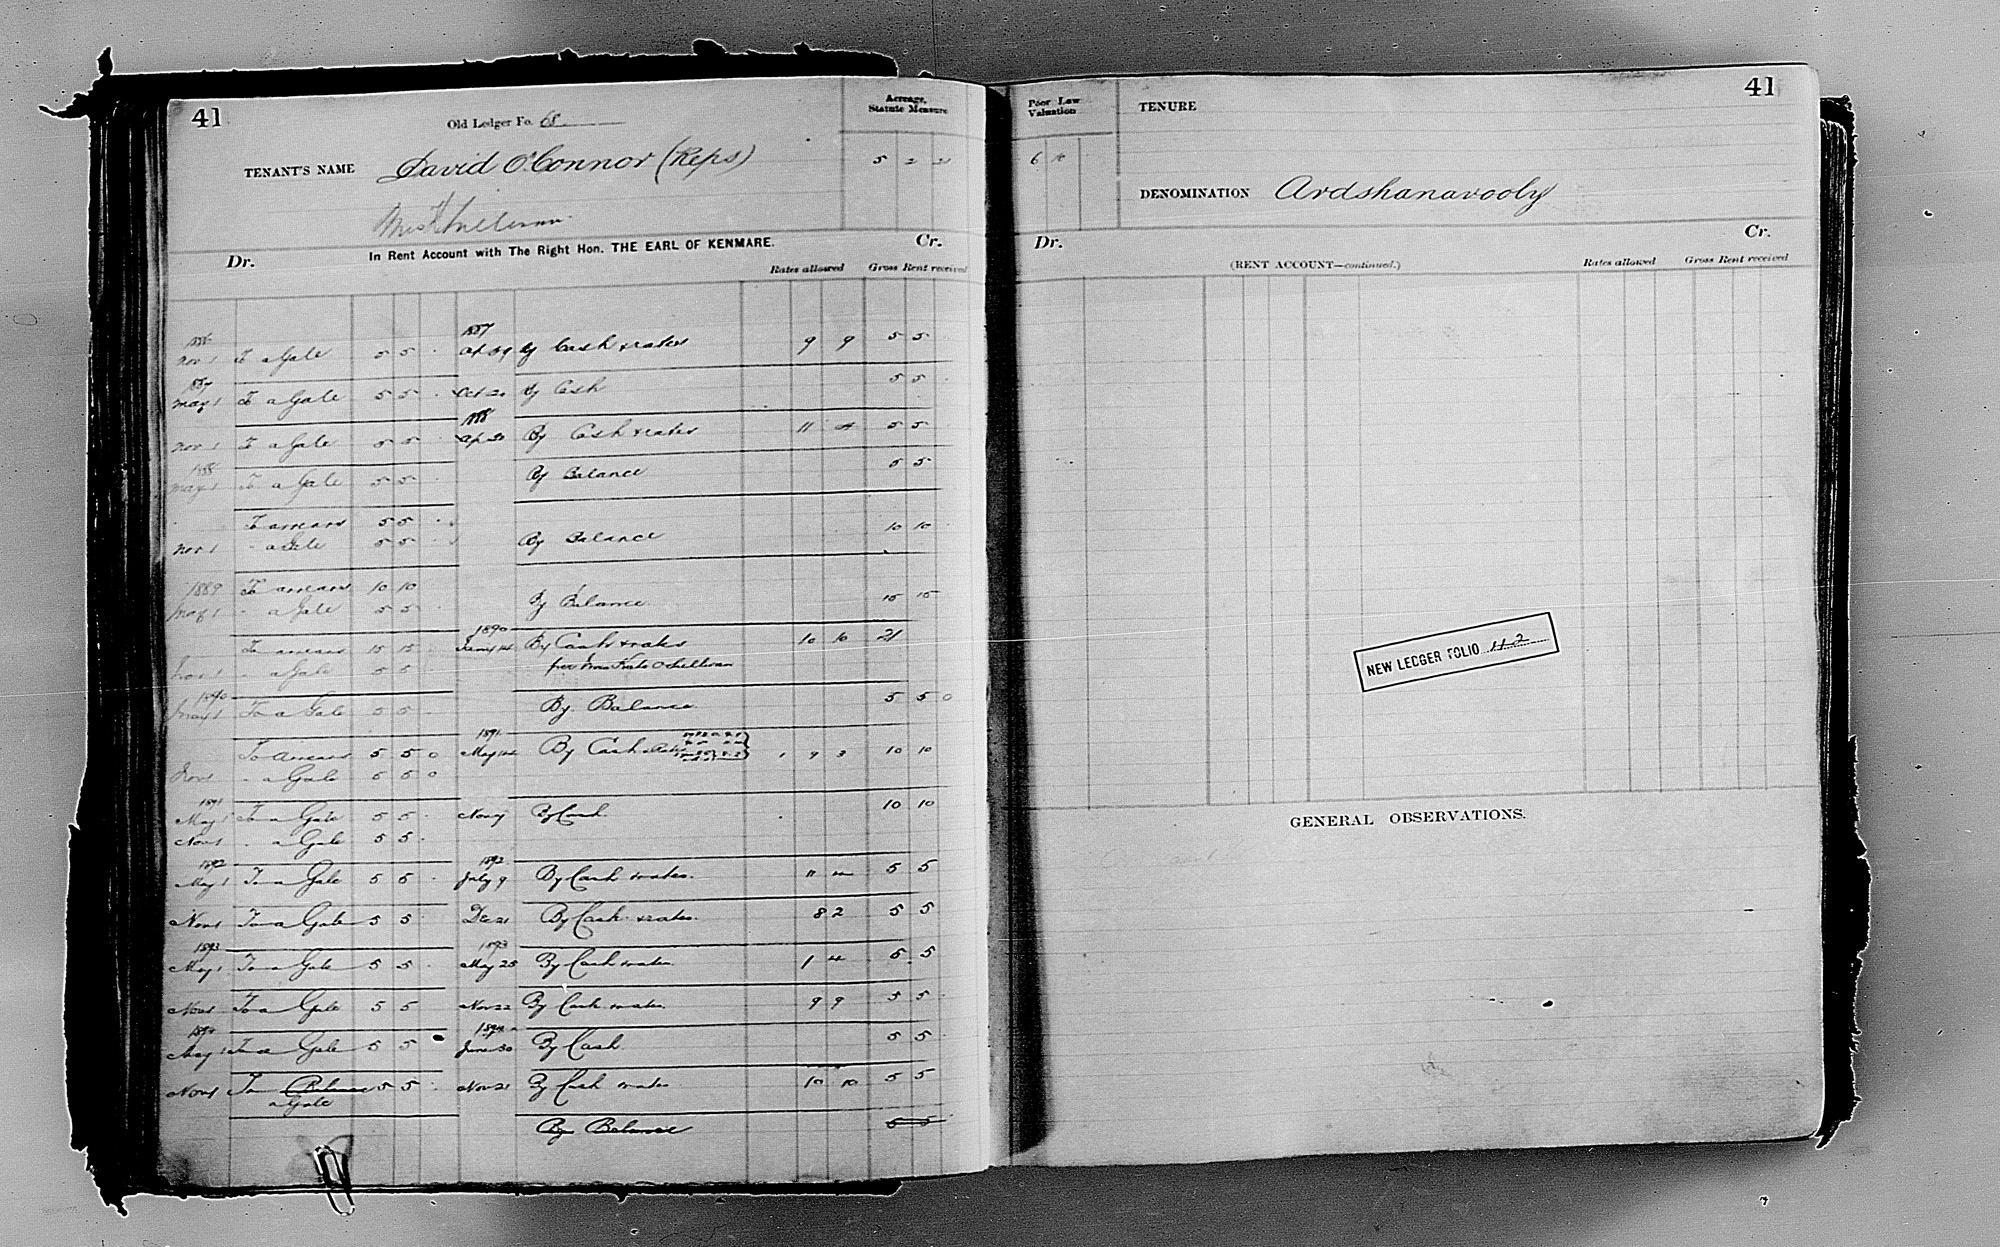 41
Old Ledger Fo. 68
Acreage, Statute Measure
TENANT'S NAME David O'Connor (Reps)
5 2
Sullivan
In Rent Account with The Right Hon. THE EARL OF KENMARE.
Dr. Cr.
Rates allowed Gross Rent received
1887
Nov 1 To a Gale 5 5 By Cash & rates 9 9 5 5
1887
May 1 To a Gale 5 5 Oct 20 By Cash 5 5
1888
Nov 1 To a Gale 5 5 Ap 30 By Cash & rates 11 4 5 5
1888
May 1 To a Gale 5 5 By Balance 5 5
To arrears 5 5
Nov 1 - a Gale 5 5 By Balance 10 10
1889 To arrears 10 10
May 1 - a Gale 5 5 By Balance 15 15
1890
To arrears 15 15 Jany 14 By Cash & rates 10 10 21
Nov 1 - a Gale 5 5 per Mrs Kate O'Sullivan
1890
May 1 To a Gale 5 5 By Balance 5 5 0
1891
To Arrears 5 5 0 May 14 By Cash & Rates 1 9 3 10 10
Nov 1 - a Gale 5 5 0
1891
May 1 To a Gale 5 5 Nov By Cash 10 10
Nov 1 - a Gale 5 5
1892 1892
May 1 To a Gale 5 5 July 9 By Cash & rates. 11 4 5 5
Nov 1 To a Gale 5 5 Dec 21 By Cash & rates. 8 2 5 5
1893 1893
May 1 To a Gale 5 5 May 25 By Cash & rates 1 4 5 5
Nov 1 To a Gale 5 5 Nov 22 By Cash & rates 9 9 5 5
1894 1894
May 1 To a Gale 5 5 June 30 By Cash 5 5
Nov 1 To Balance 5 5 Nov 21 By Cash & rates 10 10 5 5
a Gale
By Balance 5 5
41
Poor Law Valuation
TENURE
6 10
DENOMINATION Ardshanavooly
Dr. Cr.
(RENT ACCOUNT—continued.)
Rates allowed Gross Rent received
NEW LEDGER FOLIO 42
GENERAL OBSERVATIONS.